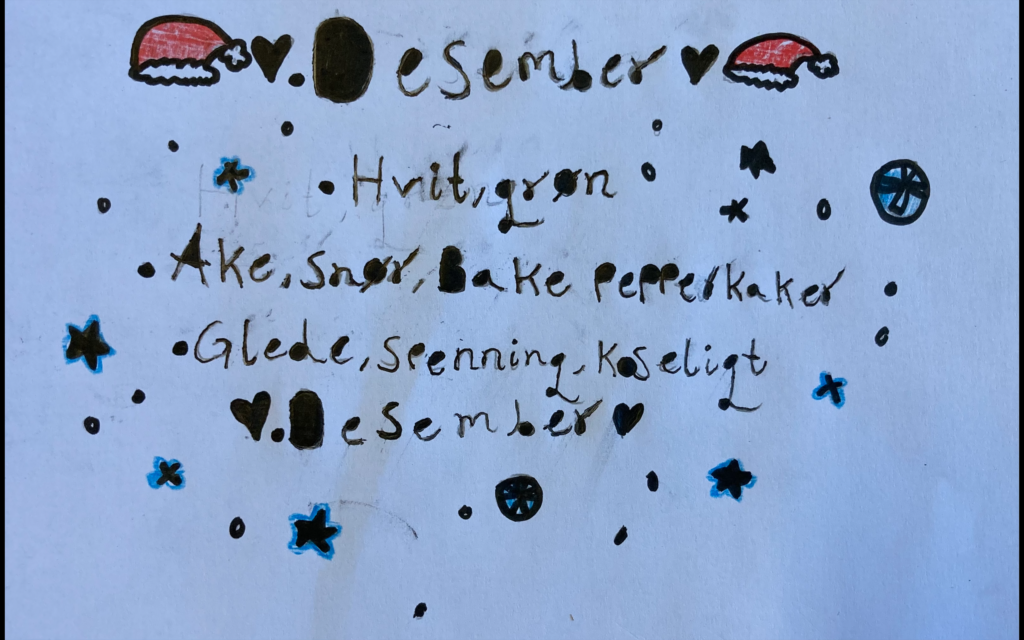 .Desember
.Hvit, grøn
.Ake, snør, Bake pepperkaker
.Glede, spenning, koseligt
.Desember